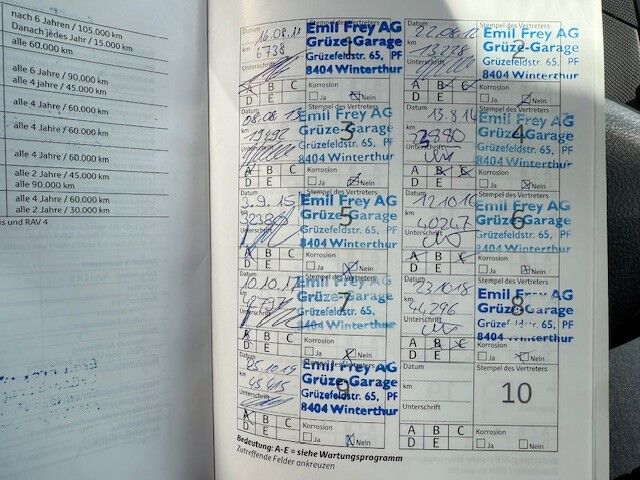 nach 6 Jahren / 105.000 km
Danach jedes Jahr / 15.000 km
alle 60.000 km
alle 6 Jahre / 90.000 km
alle 4 Jahre / 45.000 km
alle 4 Jahre / 60.000 km
alle 4 Jahre / 60.000 km
alle 4 Jahre / 60.000 km
alle 2 Jahre / 45.000 km
alle 90.000 km
alle 4 Jahre / 60.000 km
alle 2 Jahre / 30.000 km
is und RAV 4
Datum
16.08.11
km
6738
Unterschrift
Stempel des Vertreters
Emil Frey AG
Grüze-Garage
Grüzefeldstr. 65, PF
8404 Winterthur
1
A B C
D E
Korrosion
Ja Nein
Datum
22.08.12
km
13228
Unterschrift
Stempel des Vertreters
Emil Frey AG
Grüze-Garage
Grüzefeldstr. 65, PF
8404 Winterthur
2
A B C
D E
Korrosion
Ja Nein
Datum
08.08.13
km
19492
Unterschrift
Stempel des Vertreters
Emil Frey AG
Grüze-Garage
Grüzefeldstr. 65, PF
8404 Winterthur
3
A B C
D E
Korrosion
Ja Nein
Datum
13.8.14
km
Unterschrift
Stempel des Vertreters
Emil Frey AG
Grüze-Garage
Grüzefeldstr. 65, PF
8404 Winterthur
4
A B C
D E
Korrosion
Ja Nein
Datum
3.9.15
km
Unterschrift
Stempel des Vertreters
Emil Frey AG
Grüze-Garage
Grüzefeldstr. 65, PF
8404 Winterthur
5
A B C
D E
Korrosion
Ja Nein
Datum
12.10.16
km
40247
Unterschrift
Stempel des Vertreters
Emil Frey AG
Grüze-Garage
Grüzefeldstr. 65, PF
8404 Winterthur
6
A B C
D E
Korrosion
Ja Nein
Datum
10.10.17
km
Unterschrift
Stempel des Vertreters
Emil Frey AG
Grüze-Garage
Grüzefeldstr. 65, PF
8404 Winterthur
7
A B C
D E
Korrosion
Ja Nein
Datum
23.10.18
km
44,296
Unterschrift
Stempel des Vertreters
Emil Frey AG
Grüze-Garage
65, PF
8404 Winterthur
8
A B C
D E
Korrosion
Ja Nein
Datum
km
45415
Unterschrift
Stempel des Vertreters
Emil Frey AG
Grüze-Garage
Grüzefeldstr. 65, PF
8404 Winterthur
9
A B C
D E
Korrosion
Ja Nein
Datum
km
Unterschrift
Stempel des Vertreters
10
A B C
D E
Korrosion
Ja Nein
Bedeutung: A-E = siehe Wartungsprogramm
Zutreffende Felder ankreuzen